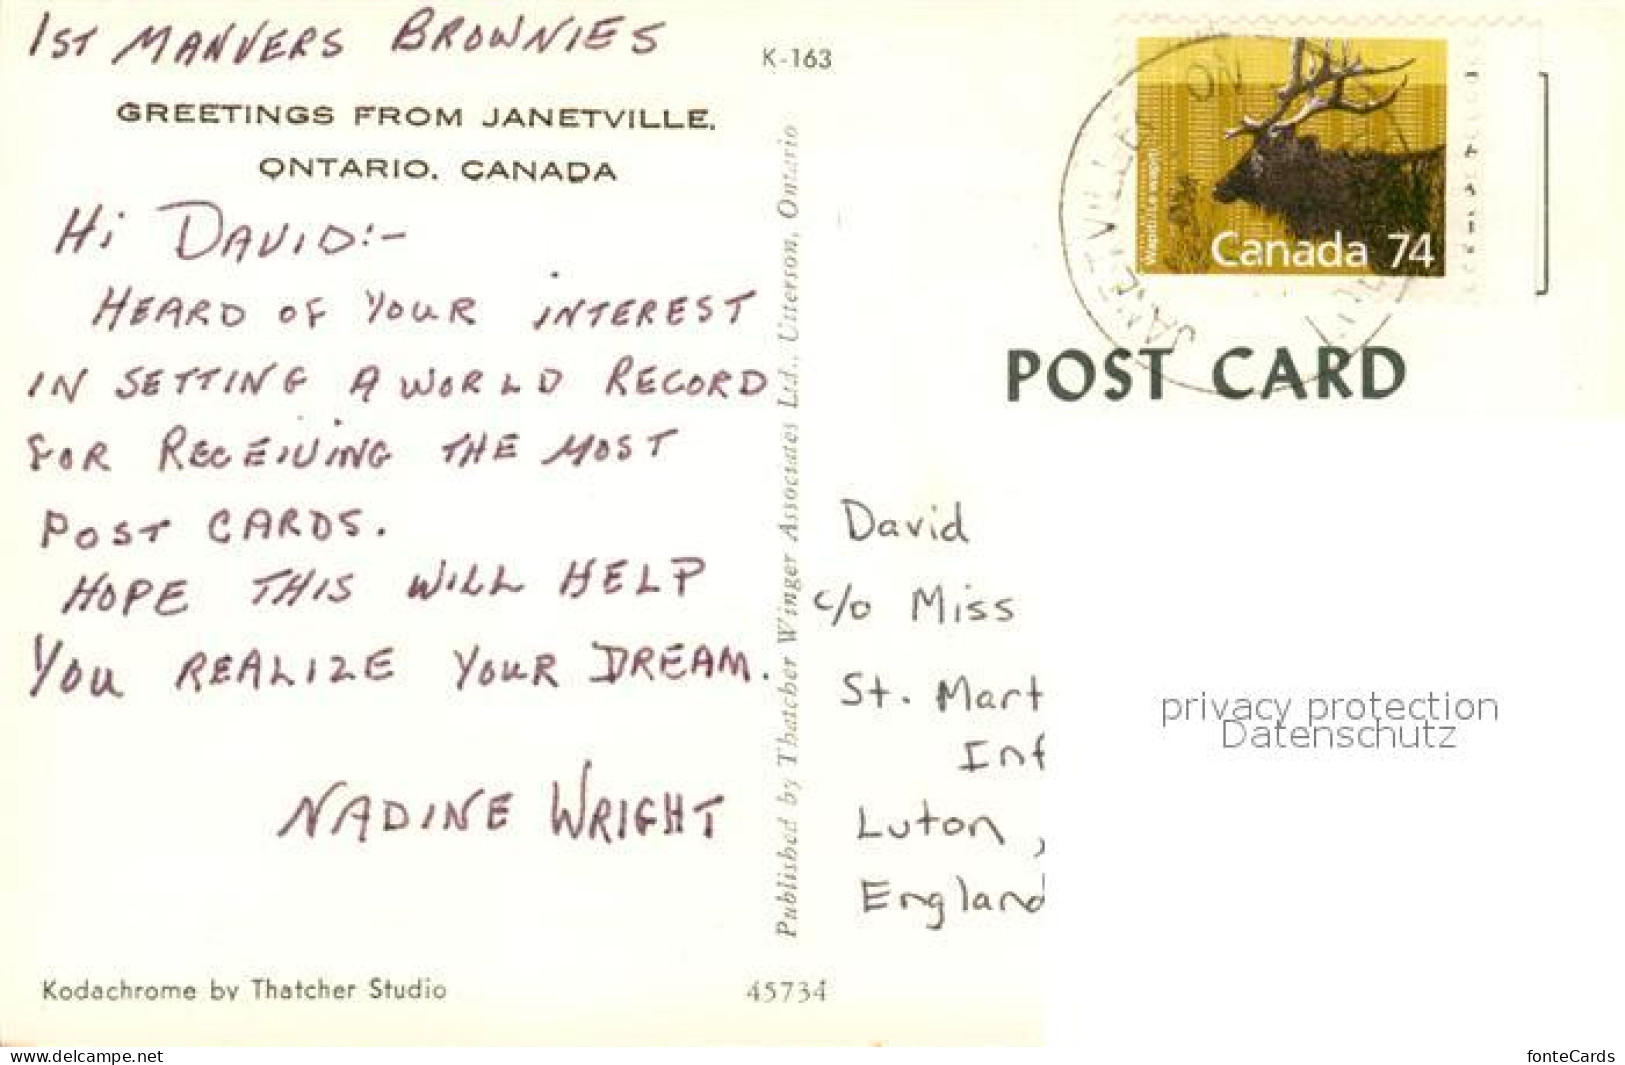 1ST MANVERS BROWNIES
K-163
GREETINGS FROM JANETVILLE,
ONTARIO, CANADA
Hi DAVID:-
HEARD OF YOUR INTEREST
IN SETTING A WORLD RECORD
FOR RECEIVING THE MOST
POST CARDS.
HOPE THIS WILL HELP
YOU REALIZE YOUR DREAM.
NADINE WRIGHT
Kodachrome by Thatcher Studio
45734
Published by Thatcher Winger Associates Ltd., Utterson, Ontario
JANETVILLE ON
Wapiti/Le wapiti
Canada 74
POST CARD
David
c/o Miss
St. Mart
Inf
Luton,
England
privacy protection
Datenschutz
www.delcampe.net
fonteCards